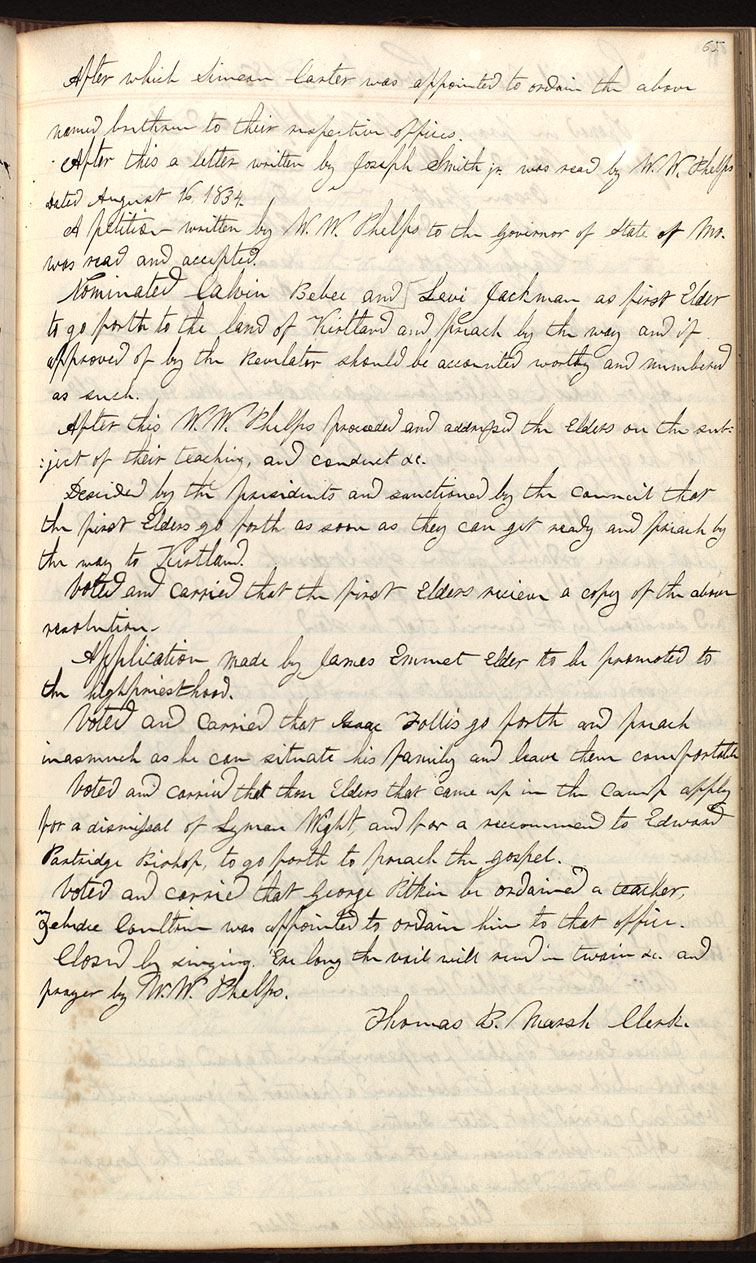 65
After which Simeon Carter was appointed to ordain the above
named brethren to their respective offices.
After this a letter written by Joseph Smith jr. was read by W. W. Phelps
Dated August 16, 1834.
A petition written by W. W. Phelps to the Governor of State of Mo.
was read and accepted.
Nominated Calvin Bebee and Levi Jackman as first Elder
to go forth to the land of Kirtland and preach by the way and if
approved of by the Revelator should be accounted worthy and numbered
as such.
After this W. W. Phelps proceeded and addressed the Elders on the sub-
-ject of their teaching, and conduct &c.
Desided by the presidents and sanctioned by the council that
the first Elders go forth as soon as they can get ready and preach by
the way to Kirtland.
Voted and carried that the first Elders recieve a copy of the above
resolution-
Application made by James Emmet Elder to be promoted to
the highpriesthood.
Voted and carried that Isaac Follis go forth and preach
inasmuch as he can situate his family and leave them comfortable
Voted and carried that those Elders that came up in the camp apply
for a dismissal of Lyman Wight, and for a recommend to Edward
Partridge Bishop, to go forth to preach the gospel.
Voted and carried that George Pitkin be ordained a teacher,
Zebedee Coultrin was appointed to ordain him to that office.
Closed by singing. Ere long the vail will rend in twain &c. and
prayer by W. W. Phelps.
Thomas B. Marsh Clerk.